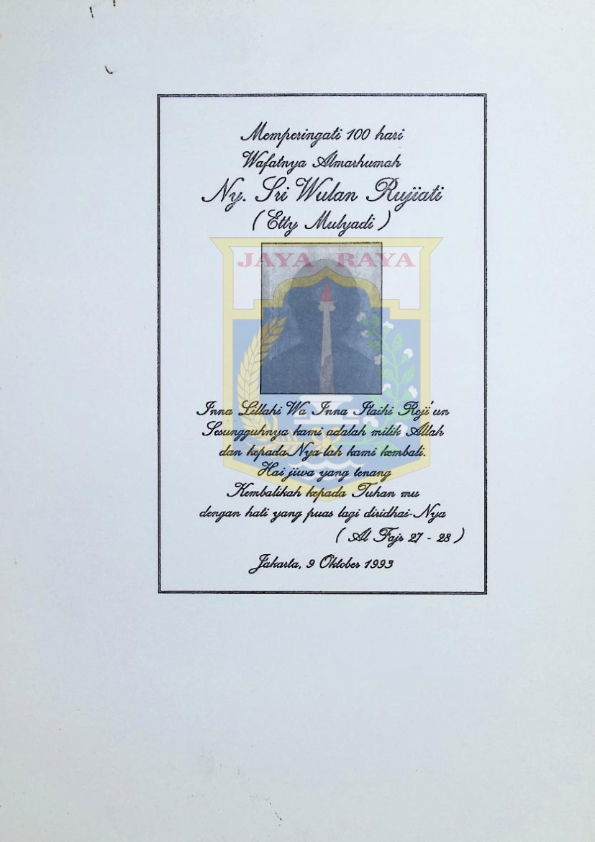 Memperingati 100 hari
Wafatnya Almarhumah
Ny. Sri Wulan Rujiati
( Etty Mulyadi )
JAYA RAYA
Inna Lillahi Wa Inna Ilaihi Roji'un
Sesungguhnya kami adalah milik Allah
dan kepada Nya-lah kami kembali.
Hai jiwa yang tenang
Kembalikah kepada Tuhan mu
dengan hati yang puas lagi diridhai-Nya
( Al Fajr 27 - 28 )
Jakarta, 9 Oktober 1993